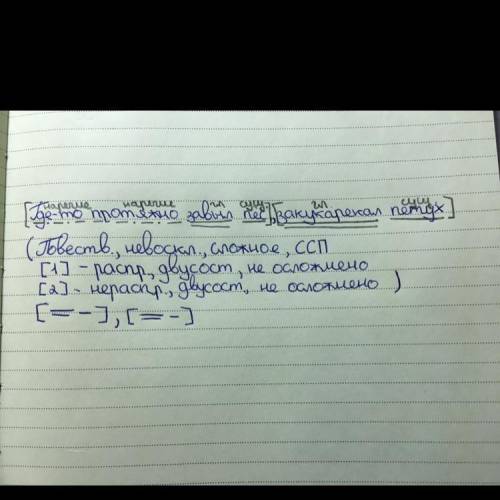 наречие наречие гл сущ. гл сущ
[Где-то протяжно завыл пес], [закукарекал петух.]
(Повеств., невоскл., сложное, ССП
[1] - распр., двусост, не осложнено
[2] - нераспр., двусост, не осложнено)
[= -], [= -]